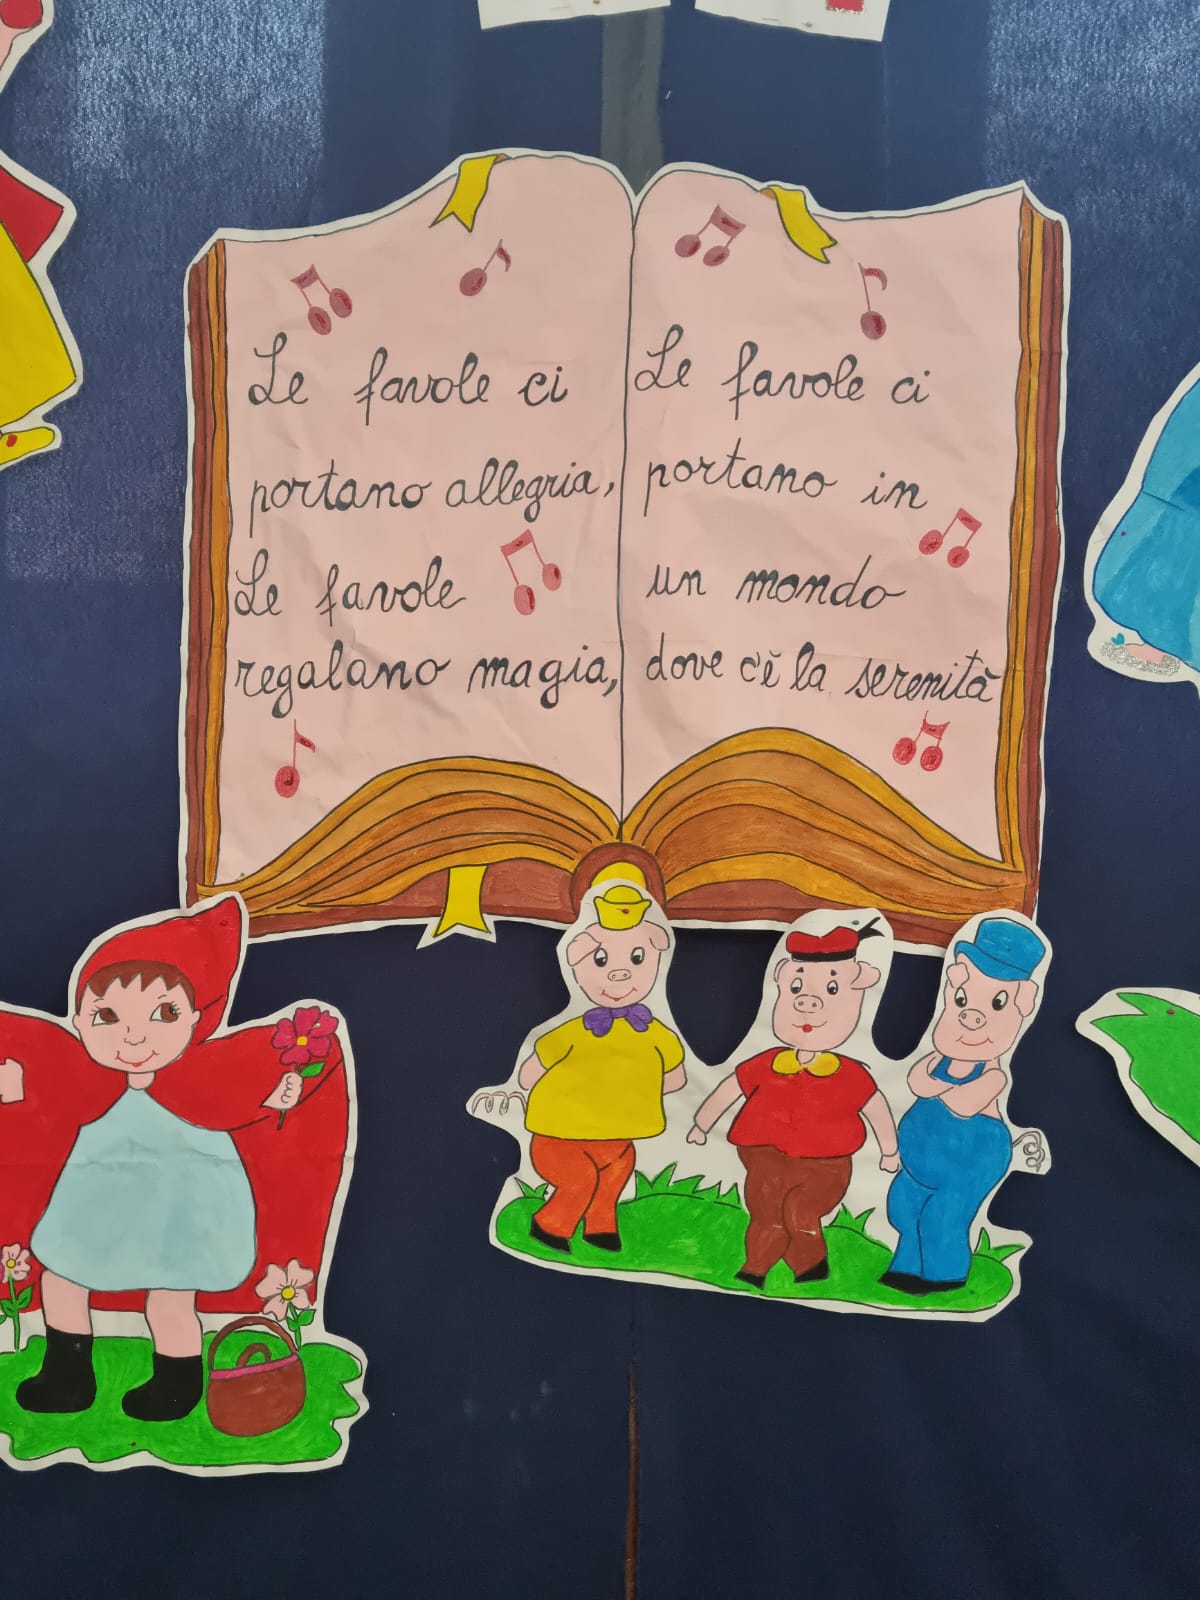 Le favole ci
portano allegria,
Le favole
regalano magia,
Le favole ci
portano in
un mondo
dove c'è la serenità